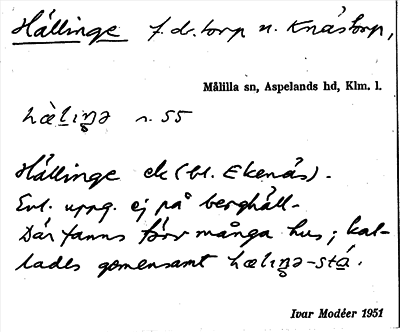 Hällinge f. d. torp u. Knästorp,
Målilla sn, Aspelands hd, Klm. l.
hæ̀liŋə n. 55
Hällinge ek (bl. Ekenäs).
Enl. uppg. ej på berghäll.
Där fanns förr många hus; kal-
lades gemensamt hæliŋə-stá.
Ivar Modéer 1951